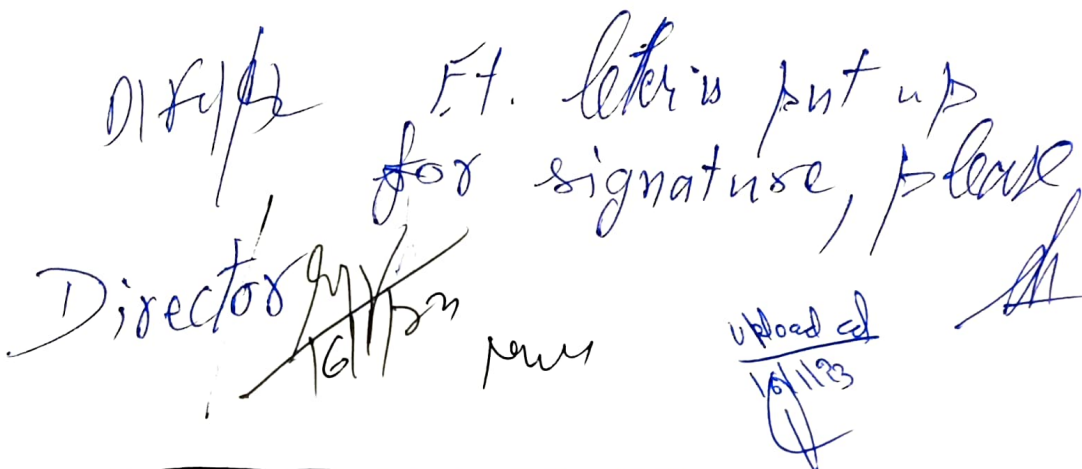 Ft. letter is put up
for signature, please
Director
uploaded
16/1/23